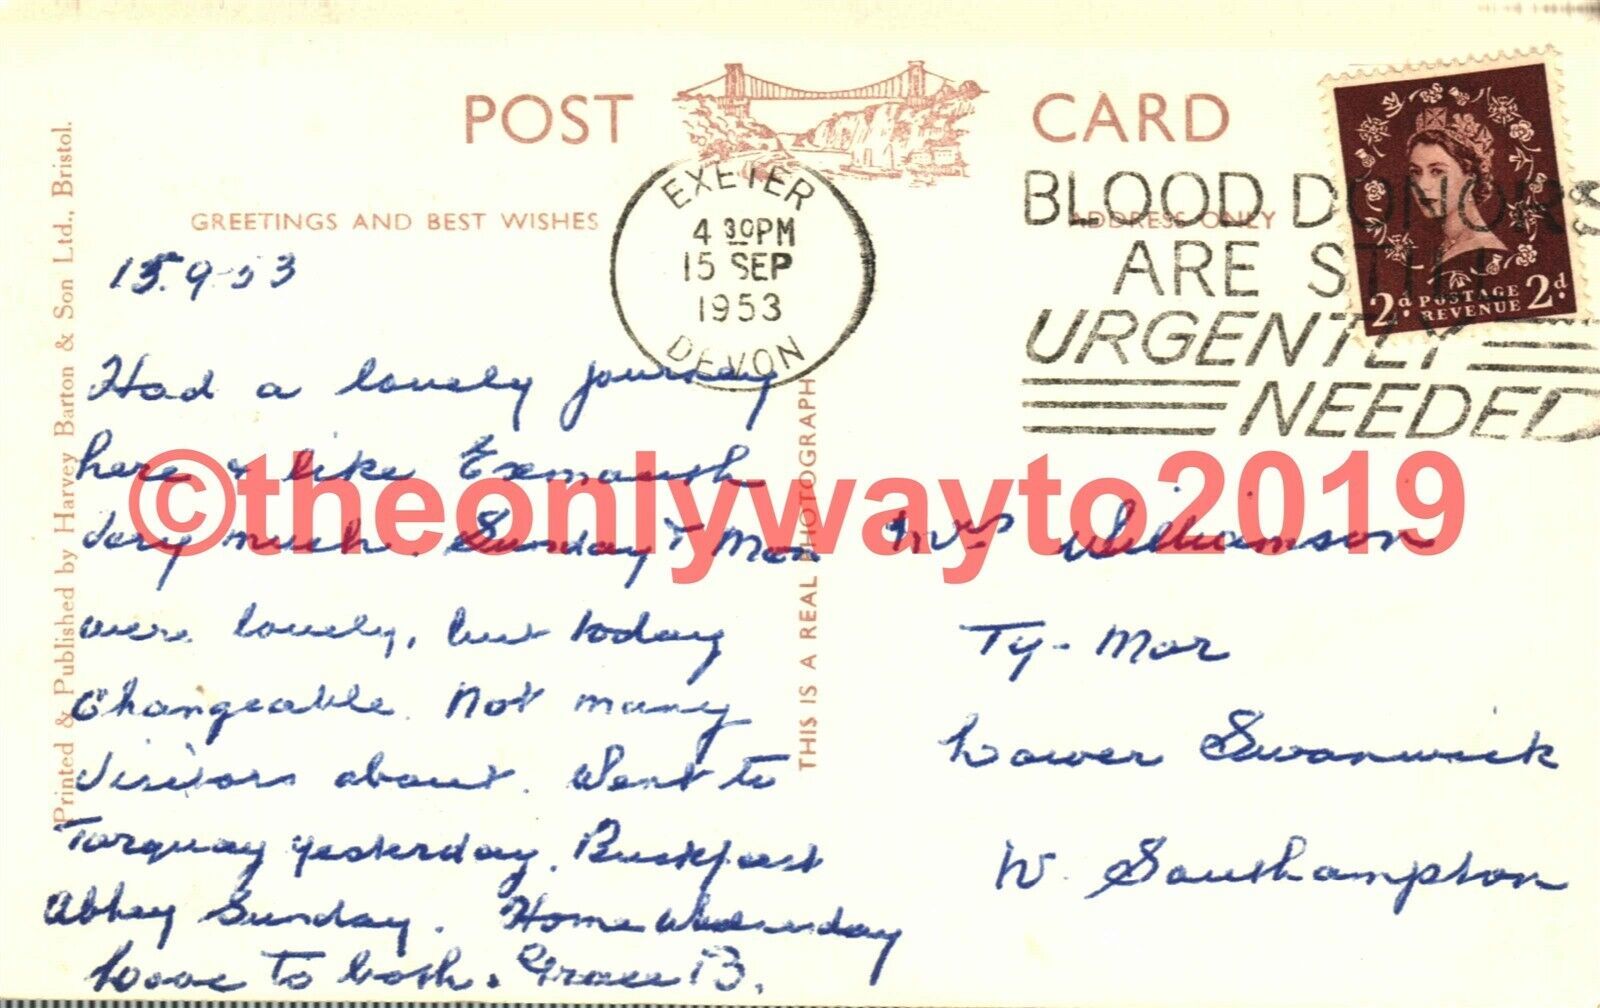 POST CARD
GREETINGS AND BEST WISHES
ADDRESS ONLY
EXETER
4 30PM
15 SEP
1953
DEVON
BLOOD DONORS
ARE STILL
URGENTLY
NEEDED
2d POSTAGE REVENUE 2d
Printed & Published by Harvey Barton & Son Ltd., Bristol.
THIS IS A REAL PHOTOGRAPH
15.9.53
Had a lovely journey
here & like Exmouth
very much. Sunday & Mon
were lovely, but today
changeable. Not many
visitors about. Went to
Torquay yesterday. Buckfast
Abbey Sunday. Home Wednesday
Love to both. Grace B.
Mrs Williamson
Ty-Mor
Lower Swanwick
Nr. Southampton
©theonlywayto2019